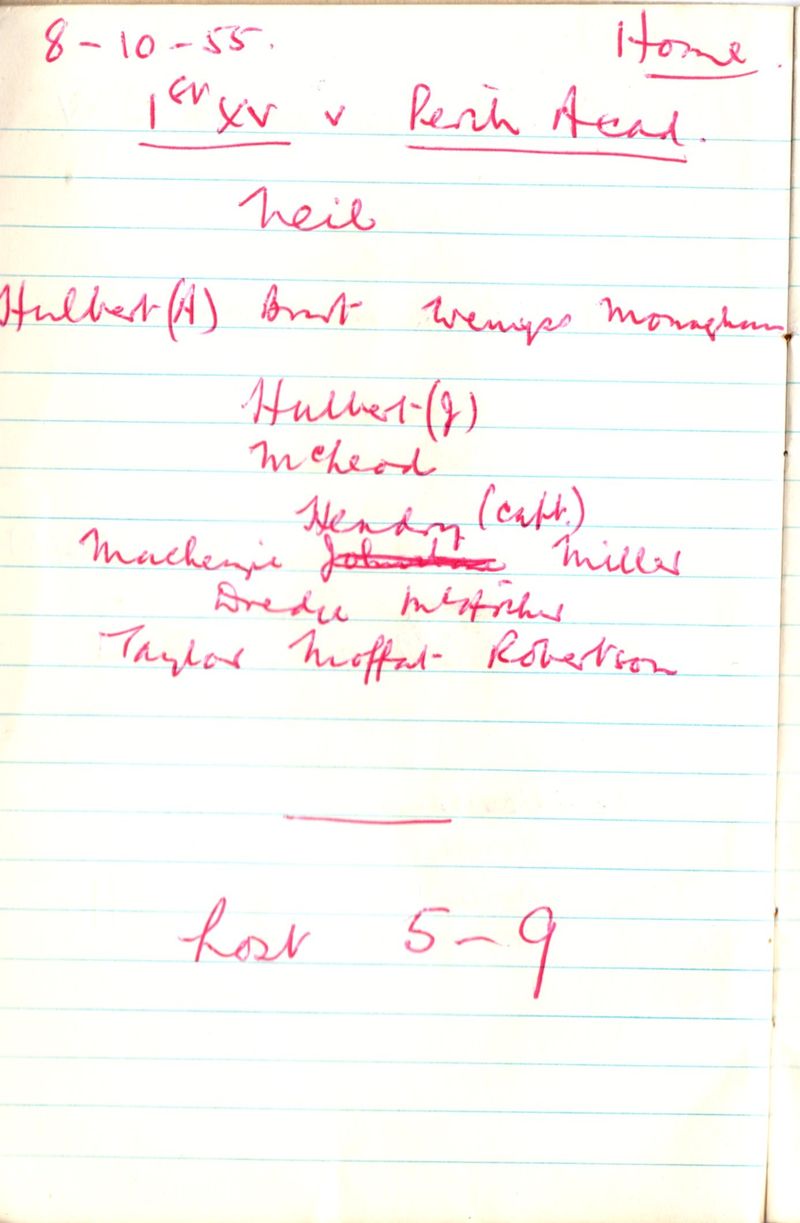 8-10-55. Home.
1ST XV v Perth Acad.
Neil
Hulbert (A) Brut Wemyss Monaghan
Hulbert (J)
McLeod
Hendry (capt.)
Mackenzie Johnstone Miller
Dredge
Taylor Moffat Robertson
Lost 5-9